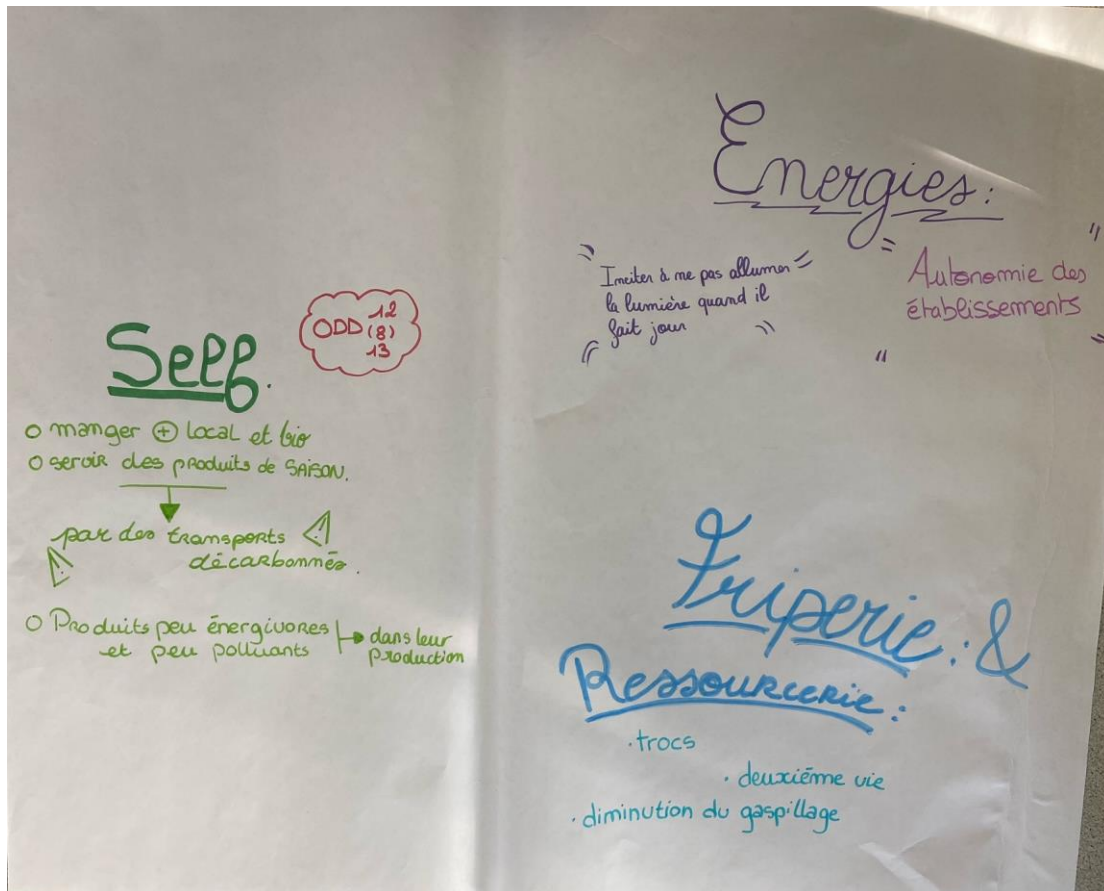 Self.
ODD 12
(8)
13
o manger + local et bio
o servir des produits de SAISON.
par des transports
décarbonnés.
o Produits peu énergivores
et peu polluants
dans leur
production
Energies :
"Inciter à ne pas allumer
la lumière quand il
fait jour"
"Autonomie des
établissements"
Friperie : &
Ressourcerie :
· trocs
· deuxième vie
· diminution du gaspillage